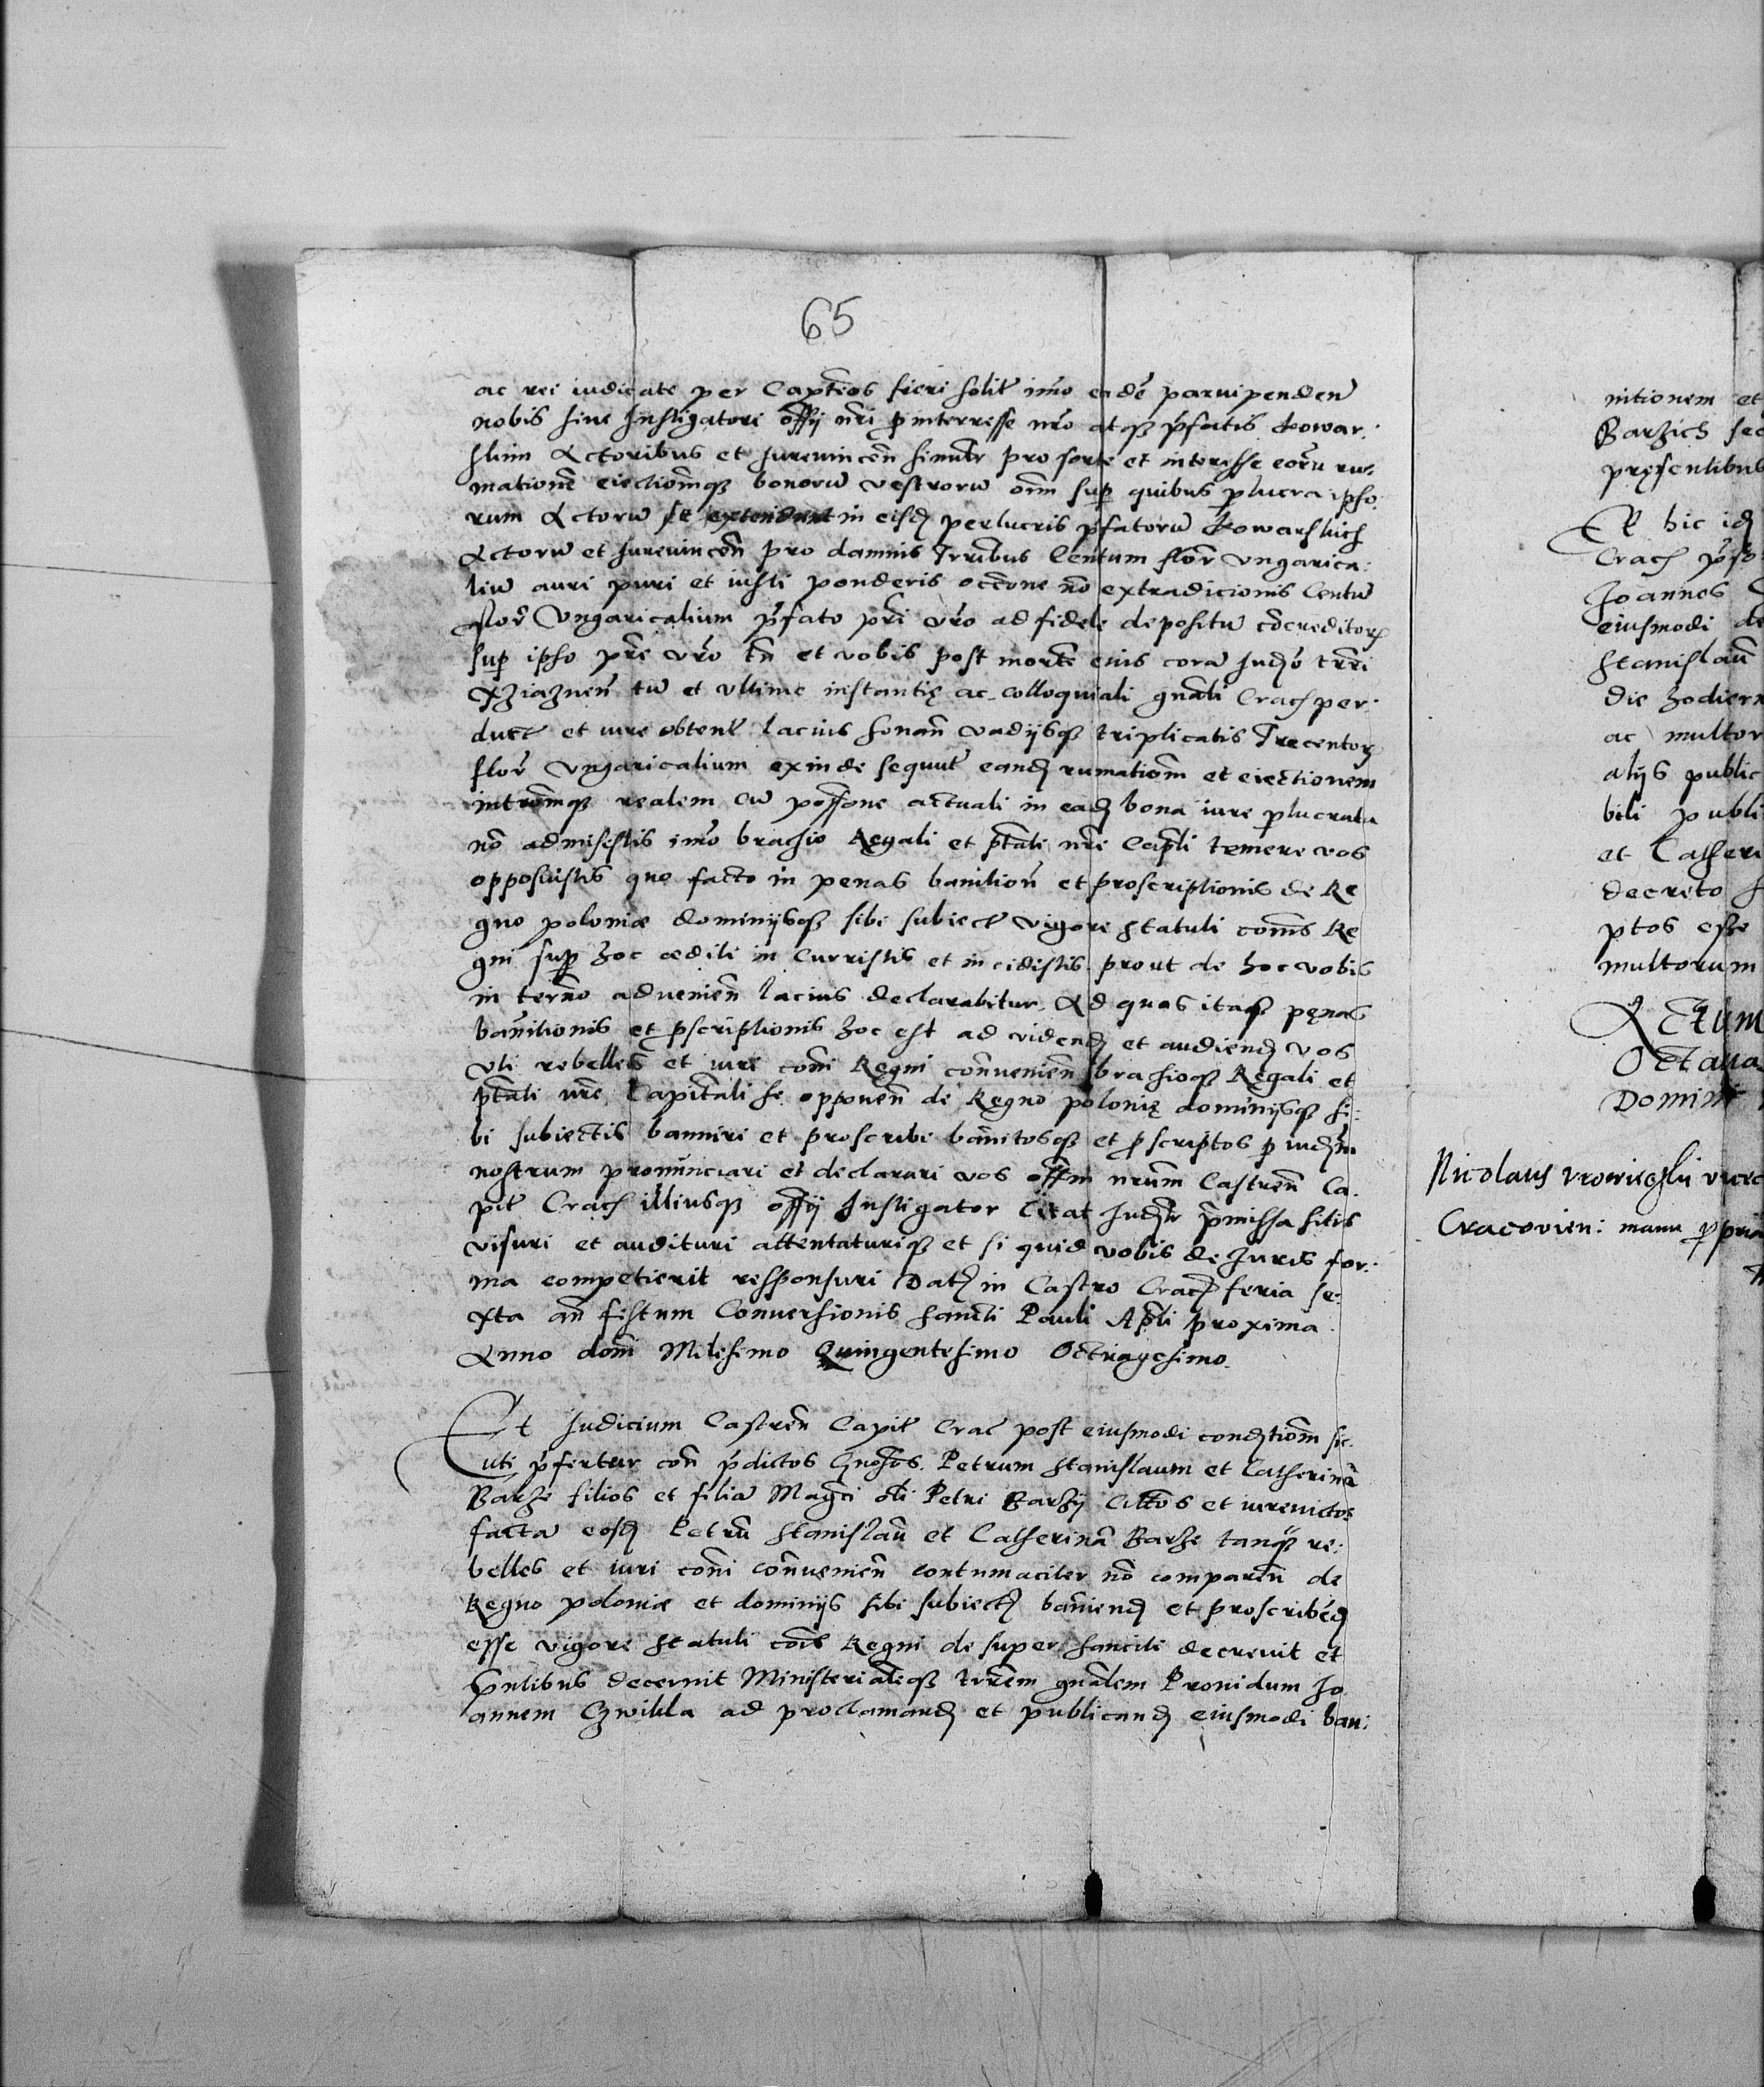 65
ac rei iudicate per Capteos fieri solit imo eade paruipenden
nobis siue Instigatori offij nri p interresse nro atq pfatis Kowar:
skim Actoribus et Jureuincen simulr pro sorte et interesse eoru ru:
mationem eiectiomq bonoru vestroru om sup quibus plucra ipso:
rum Actoru se extendunt in eisd perlucris pfatoru Kowarskich
Actoru et Jureuincen pro damnis Trribus Centum flor Vngarica:
liu auri puri et iusti ponderis occone no extradicionis Centu
flor Vngaricalium pfato pri vro ad fidele depositu cocreditor
sup ipso pre vro tn et vobis post morte eius cora Judo trri
Xziaznen tu et vltime instantię ac colloquiali gnali Crach per:
duct et iure obtent lacius sonan vadijsq triplicatis Trecentor
flor Vngaricalium exinde sequut eand rumatiom et eiectionem
intromq realem cu possone actuali in ead bona iure plucrata
no admisistis imo brachio Regali et ptati nre Capli temere vos
opposuistis quo facto in penas banition et proscriptionis de Re
gno poloniæ dominijsq sibi subiect vigore statuti comis Re
gni sup hoc aediti in Curristis et incidistis prout de hoc vobis
in termo aduenien lacius declarabitur. Ad quas itaq pęnas
banitionis et pscriptionis hoc est ad vidend et audiend vos
vti rebelles et iuri comi Regni conuenien brachioq Regali et
ptati nre Capitali se opponen de Regno polonię dominijsq si:
bi subiectis banniri et proscribi banitosq et pscriptos p iudm
nostrum pronunciari et declarari vos offm nrum Castren Ca:
pit Crach illiusq offij Instigator Citat Judr pmissa sitis
visuri et audituri attentaturiq et si quid vobis de Juris for:
ma competierit responsuri Dat in Castro Crach feria se:
xta an festum Conuersionis sancti Pauli Apli proxima.
Anno dom Milesimo Quingentesimo Octuagesimo.
Et Judicium Castren Capit Crac post eiusmodi condtiom sic:
uti pfertur con pdictos Gnosos. Petrum Stanislaum et Catherina
Barze filios et filia Magci oli Petri Barzij Cittos et iureuictos
facta eosd Petru Stanislau et Catherina Barze tanq re:
belles et iuri comi conuenien contumaciter no comparen de
Regno poloniæ et dominijs sibi subiect baniend et proscribed
esse vigore statuti cois Regni de super sanciti decreuit et
pntibus decernit Ministerialeq trrem gnalem Prouidum Jo
annem Czwikla ad proclamand et publicand eiusmodi ban:
nitionem et
Barzich sec
pręsentibus
Et hic id
Crach pfa
Joannes
eiusmodi de
Stanislau
die hodiern
ac multor
alijs public
bili publi
et Catheri
decreto
ptos esse
multorum
Actum
Octaua
Domini
Nicolaus
Cracovien: manu ppria